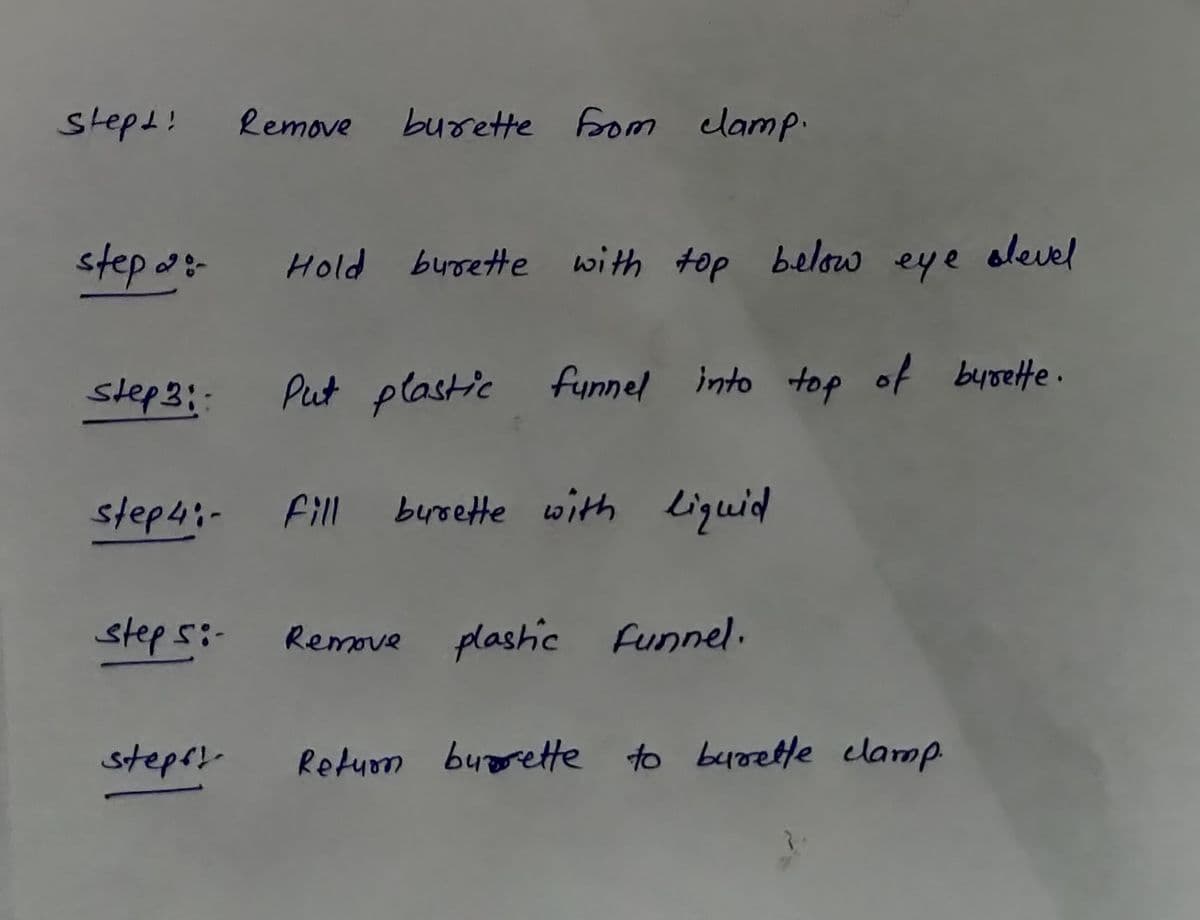 Step1: Remove burette from clamp.
step 2:- Hold burette with top below eye level
step3:- Put plastic funnel into top of burette.
step4:- Fill burette with liquid
step 5:- Remove plastic funnel.
step6:- Return burette to burette clamp.